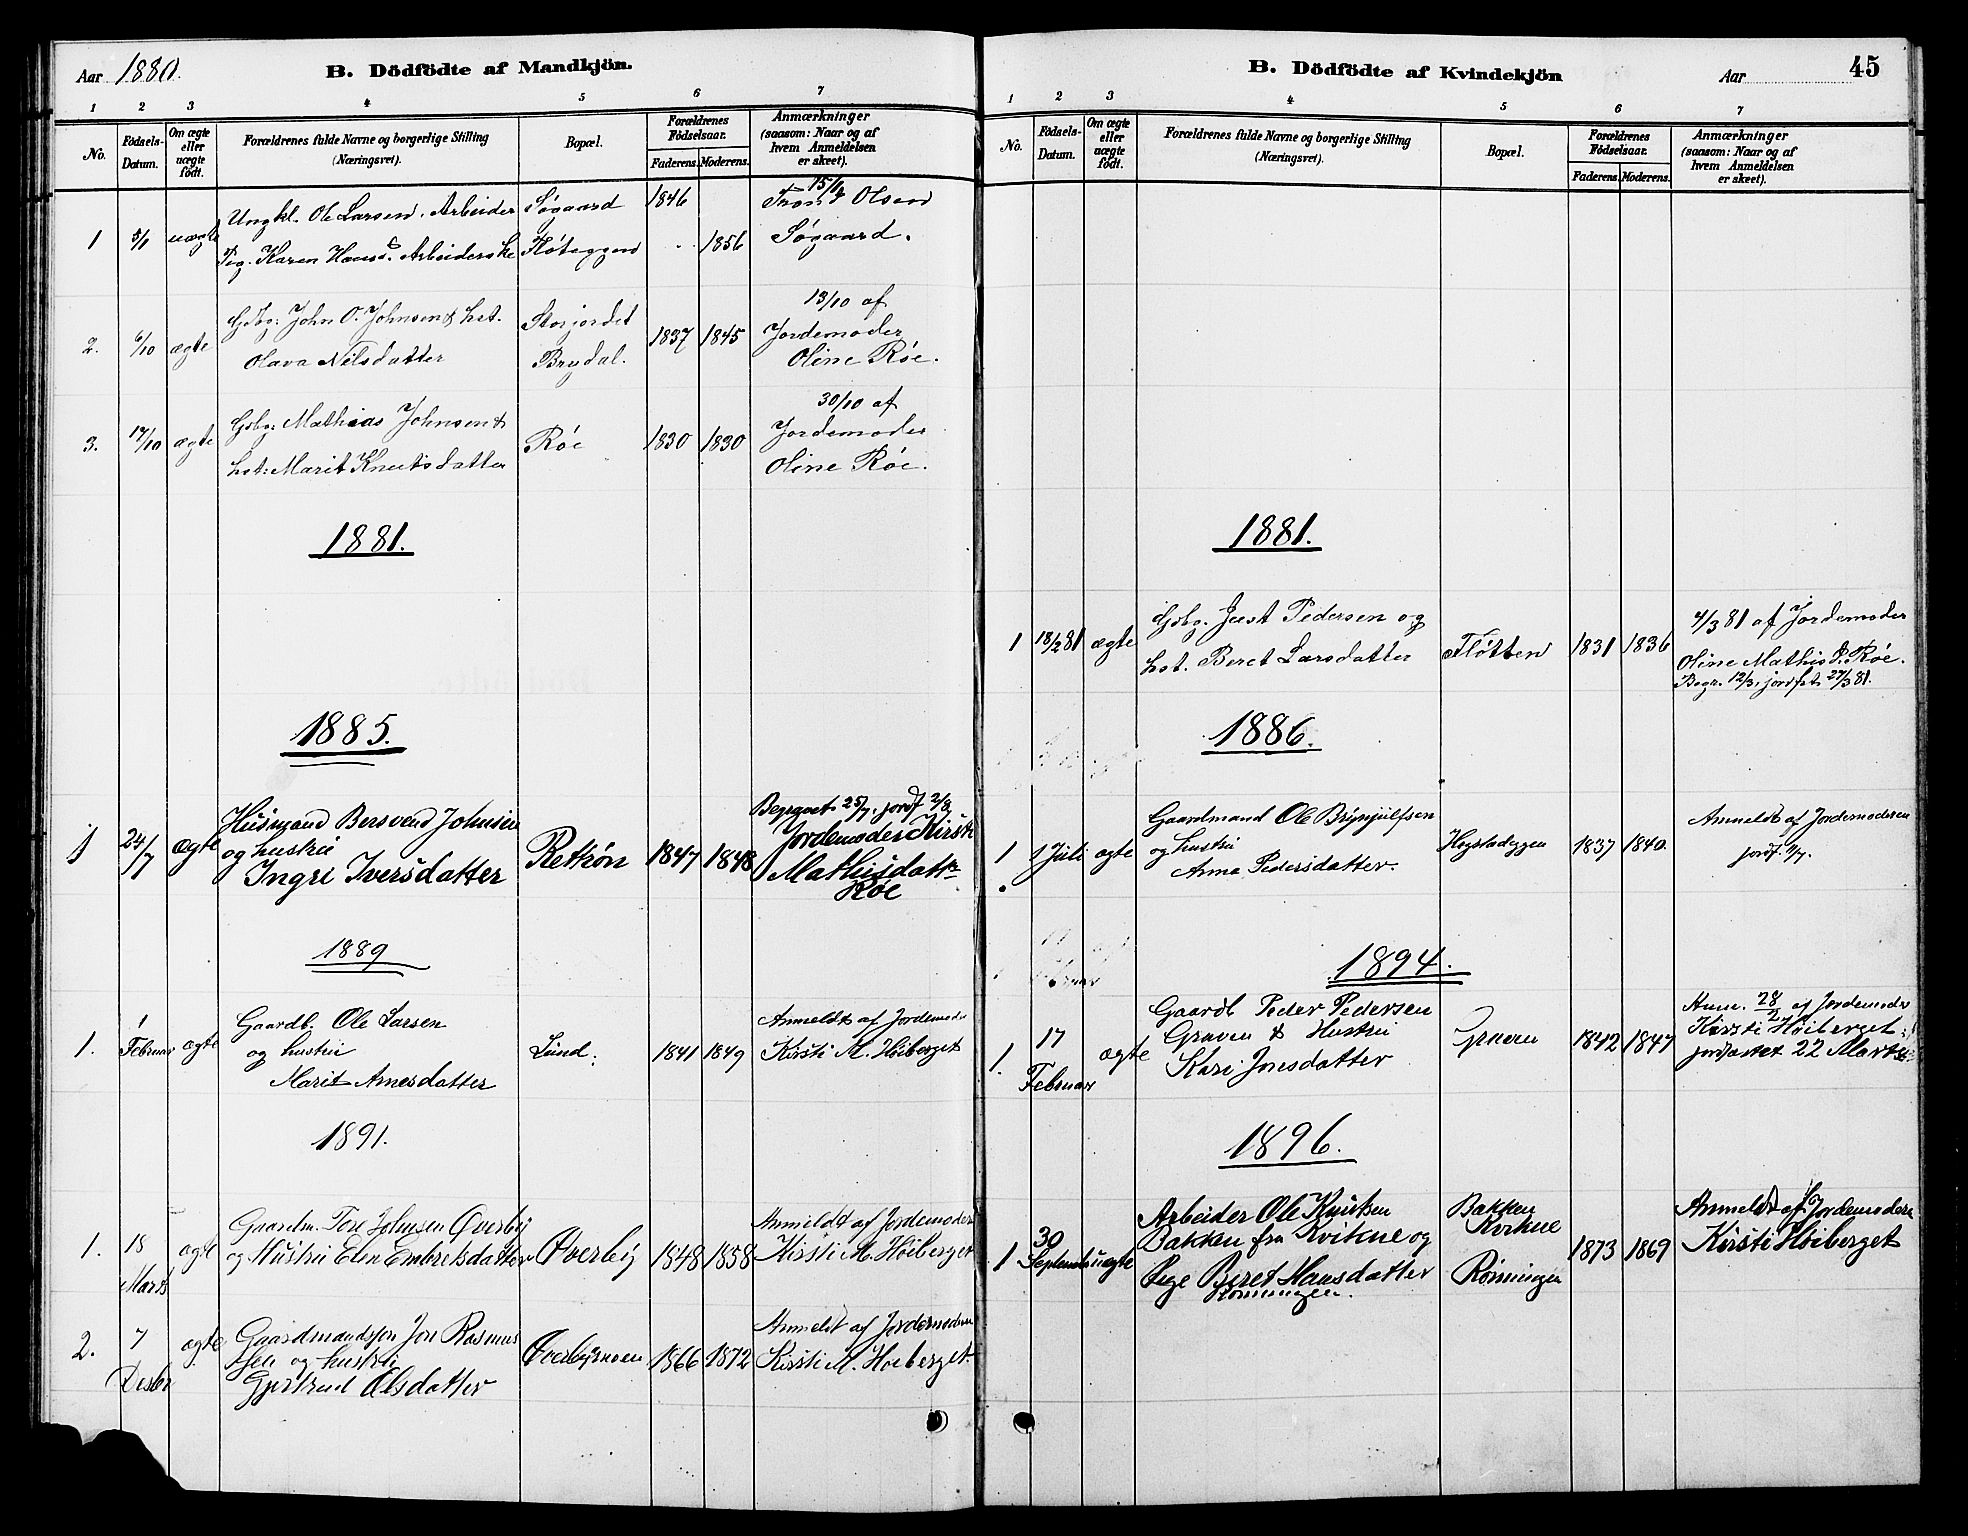 Aar 1880.
B. Dödfödte af Mandkjön.
1 2 3 4 5 6 7
No.
Födsels-Datum.
Om ægte eller uægte födt.
Forældrenes fulde Navne og borgerlige Stilling
(Næringsvei).
Bopæl.
Forældrenes Födselsaar.
Faderens. Moderens.
Anmærkninger
(saasom: Naar og af
hvem Anmeldelsen
er skeet).
1 5/1 uægte Ungkl. Ole Larsen, Arbeider Søgaard 1846 15/4
Pig. Karen Hansd. Arbeiderske Fløteggen 1856 Olsen
Søgaard.
2. 6/10 ægte Gbg: John O. Johnsen & hst. Storjordet 1837 1845 13/10 af
Olava Nilsdatter Brydal. Jordemoder
Oline Røe.
3. 17/10 ægte Gbg: Mathias Johnsen & Røe 1830 1830 30/10 af
hst: Marit Knutsdatter Jordemoder
Oline Røe.
1881.
1885.
1 24/7 ægte Husmand Bersvend Johnsen Retrøn 1847 1848 Begravet 25/7, jordf 2/8.
og hustru Jordemoder Kirsti
Ingri Iversdatter Mathisdatter
Røe
1889
1. 1 Februar ægte Gaardb. Ole Larsen Lund. 1841 1849 Anmeldt af Jordemoder
og hustru Kirsti M. Høiberget
Marit Arnesdatter
1891.
1. 18 Marts ægte Gaardm. Tore Johnsen Øverby Øverby 1848 1858 Anmeldt af Jordemoder
og Hustru Elen Embretsdatter Kirsti M. Høiberget
2. 7 Desbr ægte Gaardmandssøn Jon Rasmus 1866 1872 Anmeldt af Jordemoderen
sen og hustru Kirsti M. Høiberget.
Gjertrud Olsdatter
B. Dödfödte af Kvindekjön
Aar
45
1 2 3 4 5 6 7
No.
Födsels-Datum.
Om ægte eller uægte födt.
Forældrenes fulde Navne og borgerlige Stilling
(Næringsvei).
Bopæl.
Forældrenes Födselsaar.
Faderens. Moderens.
Anmærkninger
(saasom: Naar og af
hvem Anmeldelsen
er skeet).
1881.
1 18/2 81 ægte Gbg. Just Pedersen og Fløtten 1831 1836 4/3 81 af Jordemoder
hst. Beret Larsdatter Oline Mathisd. Røe.
Begr. 12/3, jordfst. 27/3 81.
1886.
1 1 Juli ægte Gaardmand Ole Brynjulfsen Hogstadeggen 1837 1840 Anmeldt af Jordemoderen
og hustru
Anna Pedersdatter.
1894.
1. 17 Februar ægte Gaardb Peder Pedersen Graven 1842 1847 Anm. 28/2 af Jordemoder
Graven & Hustru Kirsti Høiberget
Kari Jonsdatter jordfæstet 22 Marts
1896.
1 30 September uægte Arbeider Ole Knutsen Bakken 1873 1869 Anmeldt af Jordemoderen
Bakken fra Kvikne og Kvikne Kirsti Høiberget
Pige Beret Hansdatter Rønningen
Rønningen.